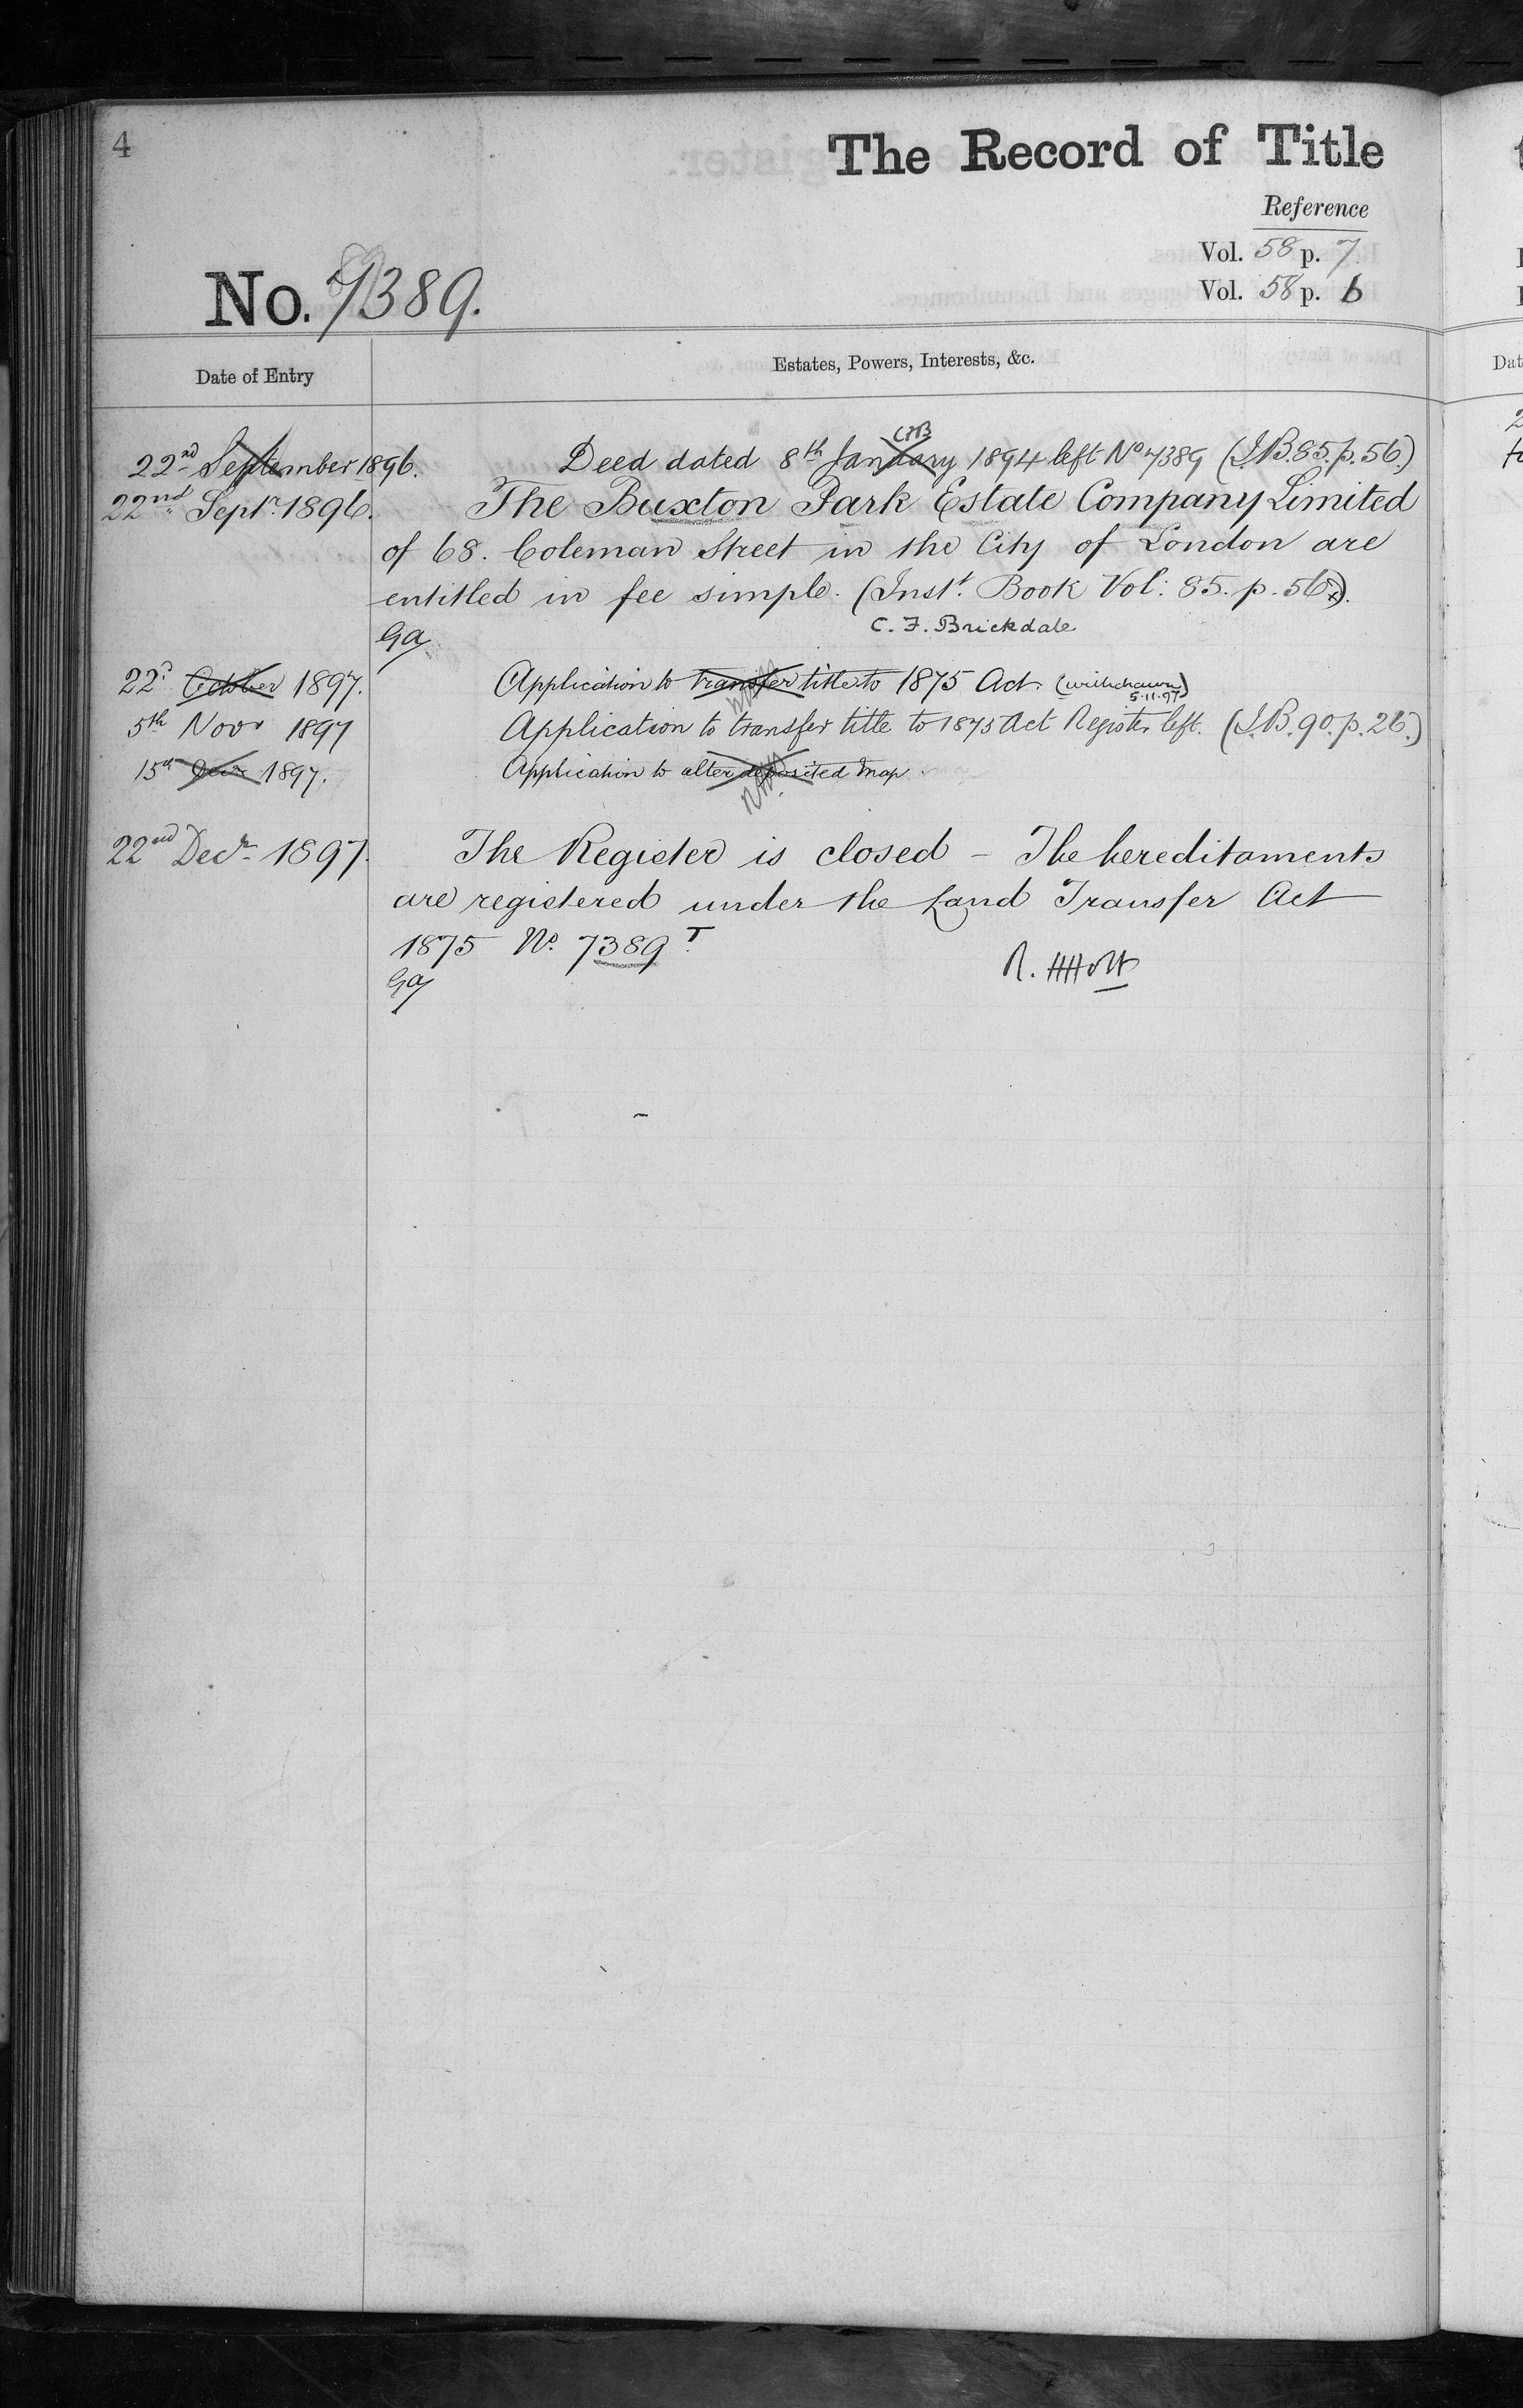 4
The Record of Title
Reference
Vol. 58 p. 7
Vol. 58 p. 6
No. 7389.
Date of Entry
Estates, Powers, Interests, &c.
22nd September 1896. Deed dated 8th January 1894 left No 7389 (I.B. 85. p. 56.)
22nd Septr. 1896. The Buxton Park Estate Company Limited
of 68. Coleman Street in the City of London are
entitled in fee simple. (Inst. Book Vol: 85. p. 56).
C. F. Brickdale
Ga
22d October 1897. Application to transfer title to 1875 Act. (withdrawn)
5.11.97
5th Novr 1897 Application to transfer title to 1875 Act Register left. (I.B. 90. p. 26.)
15th Decr 1897. Application to alter deposited map
22nd Decr. 1897. The Register is closed – The hereditaments
are registered under the Land Transfer Act
1875 No. 7389 T
Ga
R. H Holt